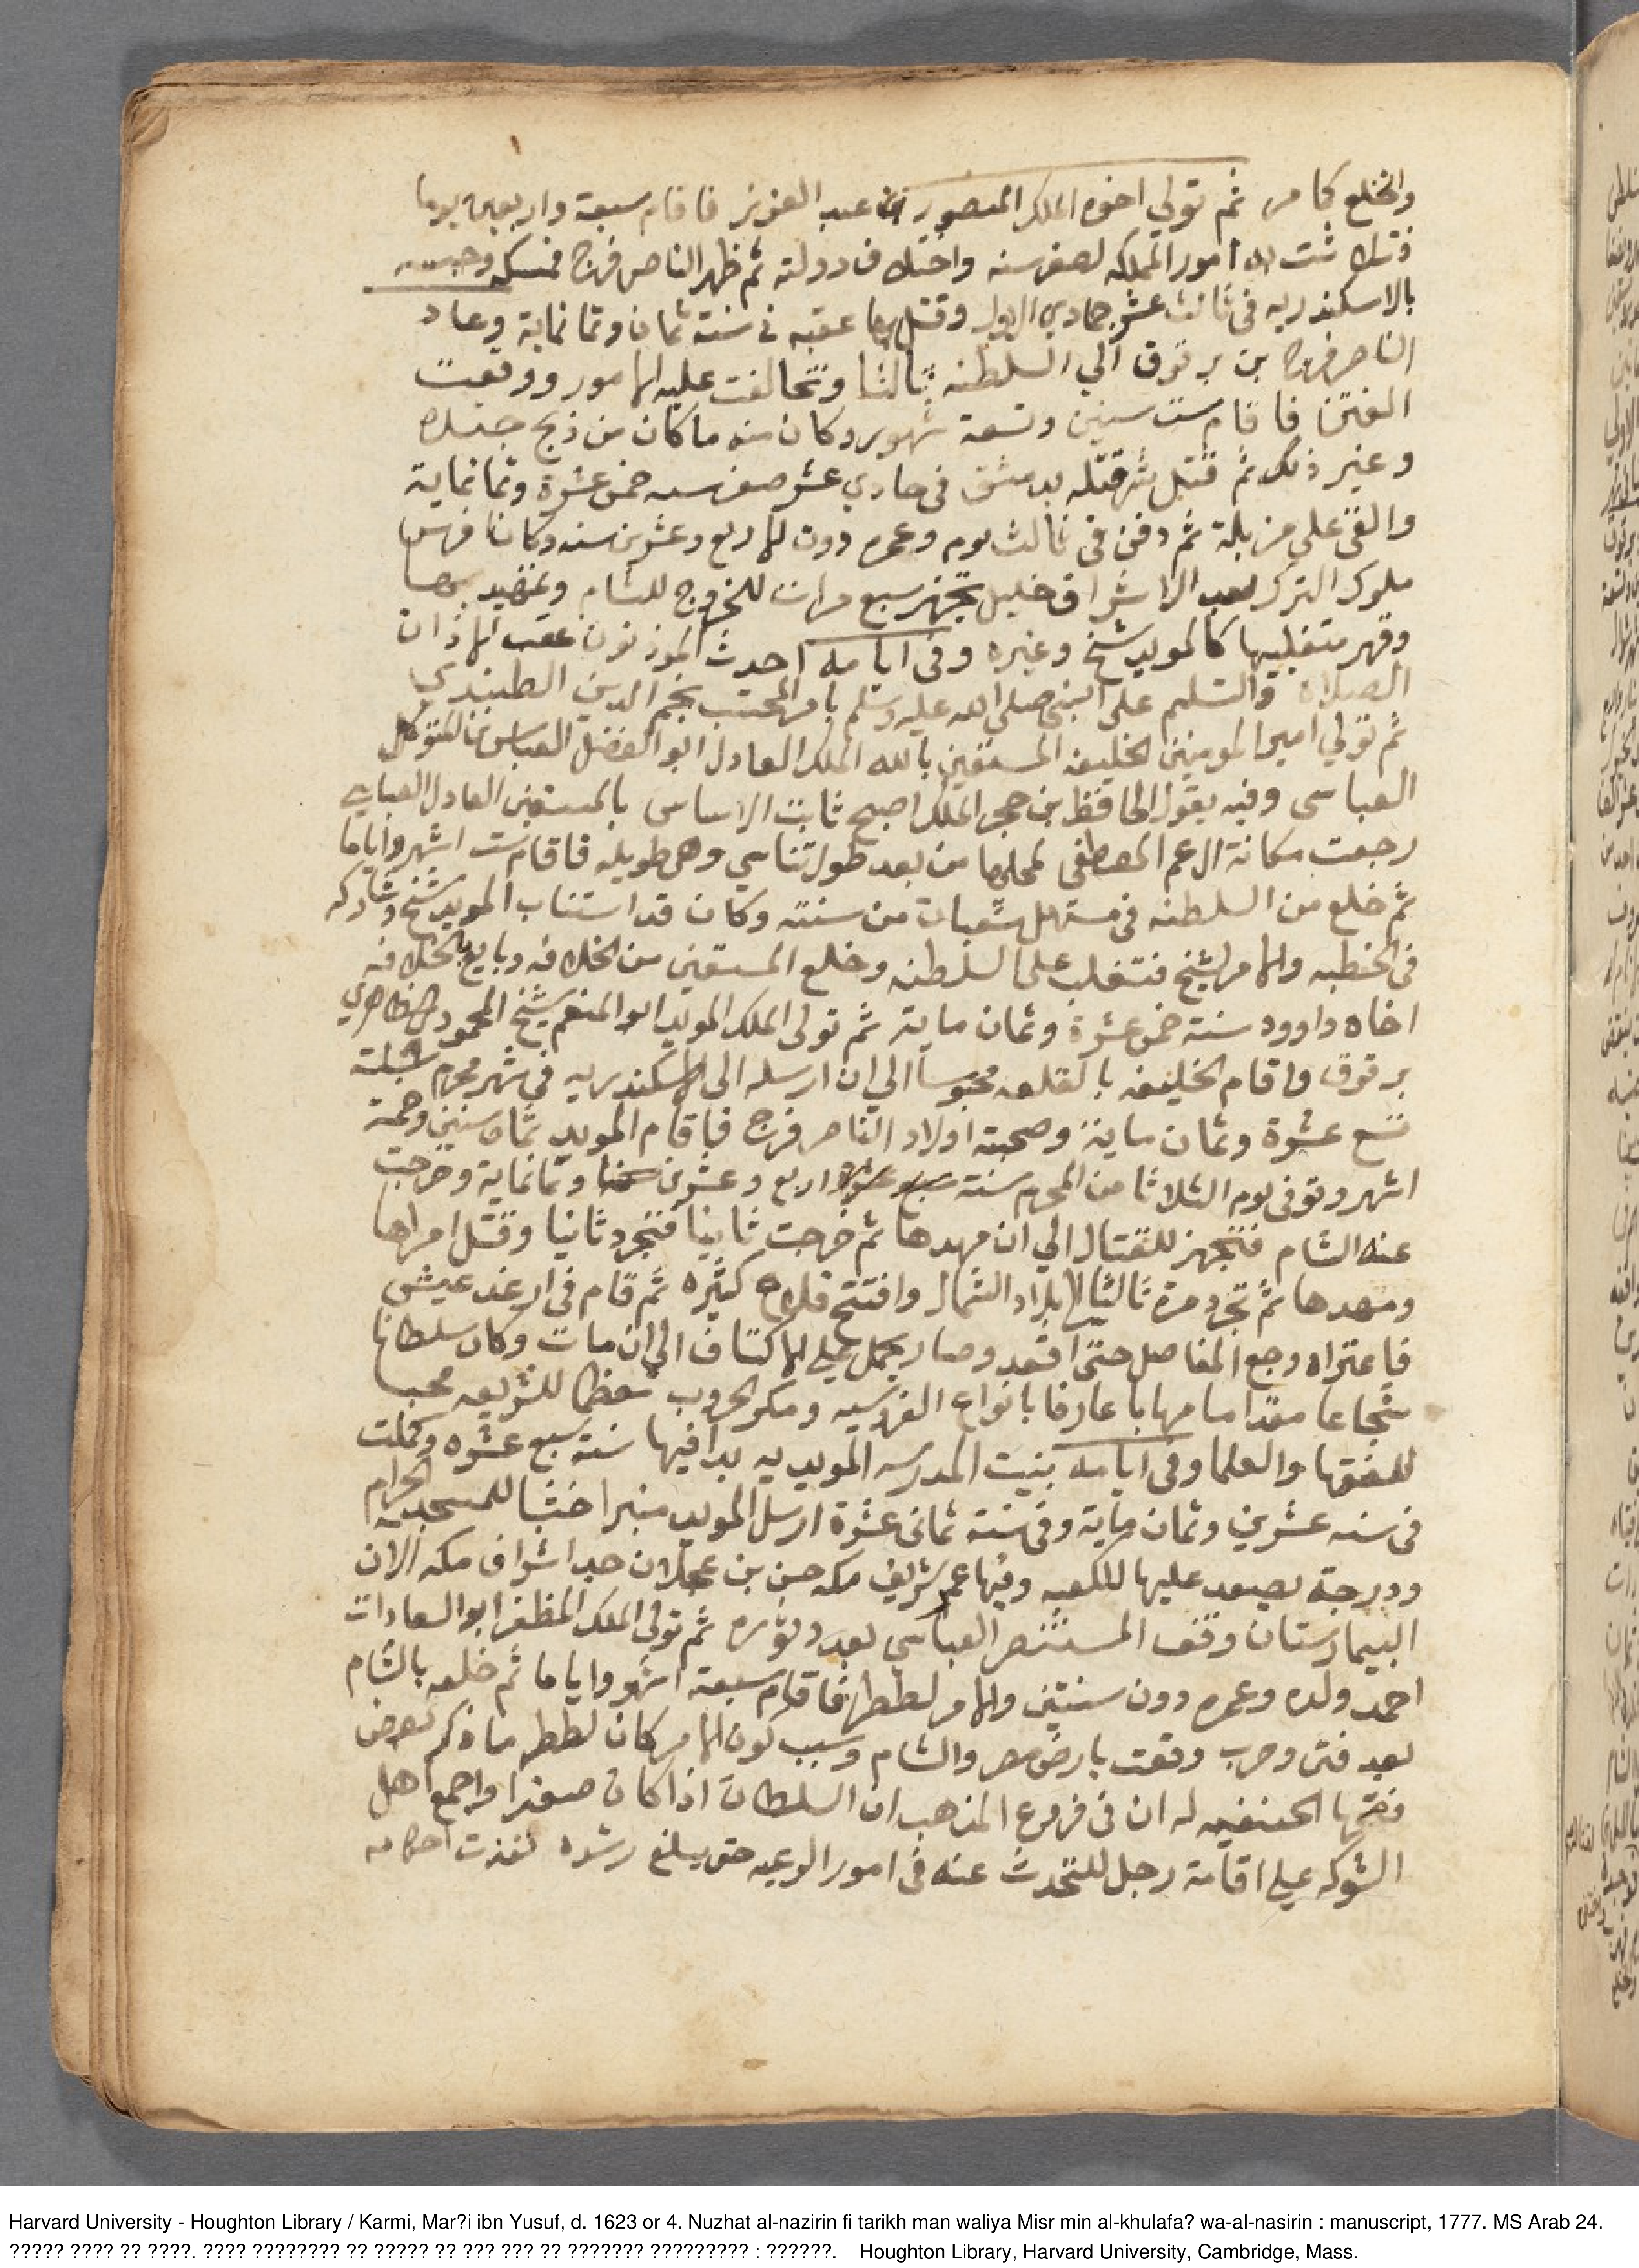 وانخلع كما مر ثم تولي اخوه الملك المنصور عبد العزيز فاقام سبعة واربعين يوما
فتلاشت امور المملكه لصغر سنه واختلاف دولته ثم ظهر الناصر فرج فمسكه وحبسه
بالاسكندريه في ثالث عشر جمادي الاول وقتل بها عقبه في سنة ثمان وثمانماية وعاد
الناصر فرج بن برقوق الي السلطنه ثالثا وتخالفت عليه الامور ووقعت
الفتن فاقام ست سنين وتسعة شهور وكان منه ما كان من ذبح جنده
وغير ذلك ثم قتل شر قتله بدمشق في حادي عشر صفر سنه خمس عشرة وثمانماية
والقي علي مزبلة ثم دفن في ثالث يوم وعمره دون الاربع وعشرين سنه وكان افرس
ملوك الترك بعد الاشراف خليل تجهز سبع مرات للخروج للشام وتمهيدها
وقهر متغلبيها كالمويد شيخ وغيره وفي ايامه احدث الموذنون عقب الاذان
الصلاة والتسليم على النبي صلى الله عليه وسلم بامر المحتسب نجم الدين الطبندي
ثم تولي امير المومنين الخليفه المستعين بالله الملك العادل ابو الفضل العباس بن المتوكل
العباسي وفيه يقول الحافظ بن حجر الملك اصبح ثابت الاساس بالمستعين العادل العباسي
رجعت مكانة ال عم المصطفى لمحلها من بعد طول تناسي وهي طويله فاقام ست اشهر واياما
ثم خلع من السلطنه في مستهل شعبان من سنته وكان قد استناب المويد شيخ وشاركه
في الخطبه والامر لشيخ فتغلب على السلطنه وخلع المستعين من الخلافه وبايع بالخلافه
اخاه داوود سنة خمس عشرة وثمان ماية ثم تولى الملك المويد ابو شيخ المحمودي الظاهري
برقوق واقام الخليفه بالقلعه محبوسا الي ان ارسله الى الاسكندريه في شهر محرم سنة
تسع عشرة وثمان ماية وصحبته اولاد الناصر فرج فاقام المويد ثمان سنين وخمسة
اشهر وتوفى يوم الثلاثا من المحرم سنة اربع وعشرين وثمانماية وخرجت
عنه الشام فتجهز للقتال الي ان مهدها ثم خرجت ثانيا فتجرد ثانيا وقتل امراها
ومهدها ثم تجرد مرة ثالثا لبلاد الشمال وافتتح قلاع كثيره ثم قام في ارغد عيش
فاعتراه وجع المفاصل حتى اقعد وصار يحمل علي الاكتاف الي ان مات وكان سلطانا
شجاعا مقداما مهابا عارفا بانواع الفروسيه ومكر الحروب معظما للشريعه محبا
للفقها والعلما وفي ايامه بنيت المدرسه المويديه بدا فيها سنة سبع عشره وكملت
في سنه عشرين وثمان ماية وفي سنة ثماني عشرة ارسل المويد منبرا خشبا للمسجد الحرام
ودرجة يصعد عليها للكعبه وفيها عمر شريف مكه حسن بن عجلان جد اشراف مكه الان
البيمارستان وقف المستنصر العباسي بعد دثوره ثم تولي الملك المظفر ابو السعادات
احمد ولده وعمره دون سنتين والامر لططر فاقام سبعة اشهر واياما ثم خلعه بالشام
بعد فتن وحرب وقعت بارض مصر والشام وسبب كون الامر كان لططر ما ذكر بعض
فقها الحنفيه له ان في فروع المذهب ان السلطان اذا كان صغيرا واجمع اهل
الشوكه علي اقامة رجل للتحدث عنه في امور الرعيه حتى يبلغ رشده نفذت احكامه
Harvard University - Houghton Library / Karmi, Mar?i ibn Yusuf, d. 1623 or 4. Nuzhat al-nazirin fi tarikh man waliya Misr min al-khulafa? wa-al-nasirin : manuscript, 1777. MS Arab 24.
????? ???? ?? ????. ???? ???????? ?? ????? ?? ??? ??? ?? ??????? ????????? : ??????. Houghton Library, Harvard University, Cambridge, Mass.